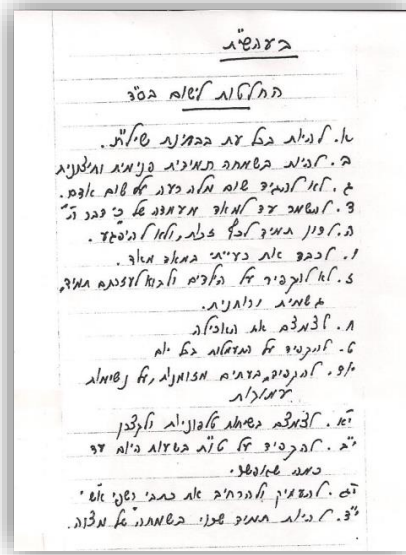 בעהשי"ת
החלטות לישום בס"ד
א. להיות בכל עת בבחינת שיל"ת.
ב. להיות בשמחה תמידית פנימית וחיצונית
ג. לא להגיד שום מלה רעה על שום אדם.
ד. להשמר עד למאד מעמדה של כי דבר ה'
ה. לדון תמיד לכף זכות, ולא להיפגע.
ו. לכבד את רעייתי במאד מאד.
ז. לא להקפיד על הילדים ולבוא לעזרתם תמיד,
גשמית ורוחנית.
ח. לצמצם את האכילה
ט. להקפיד על התעמלות בכל יום
יו"ד. להקפיד, בעתים מזומנות, על נשימות
עמוקות
י"א. לצמצם בשיחות טלפוניות ולקצרן
י"ב. להקפיד על טו"ת בשעות היום עד
כמה שאפשר
י"ג. להעמיק ולהרחיב את כתבי
י"ד. להיות תמיד שרוי בשמחה של מצוה.